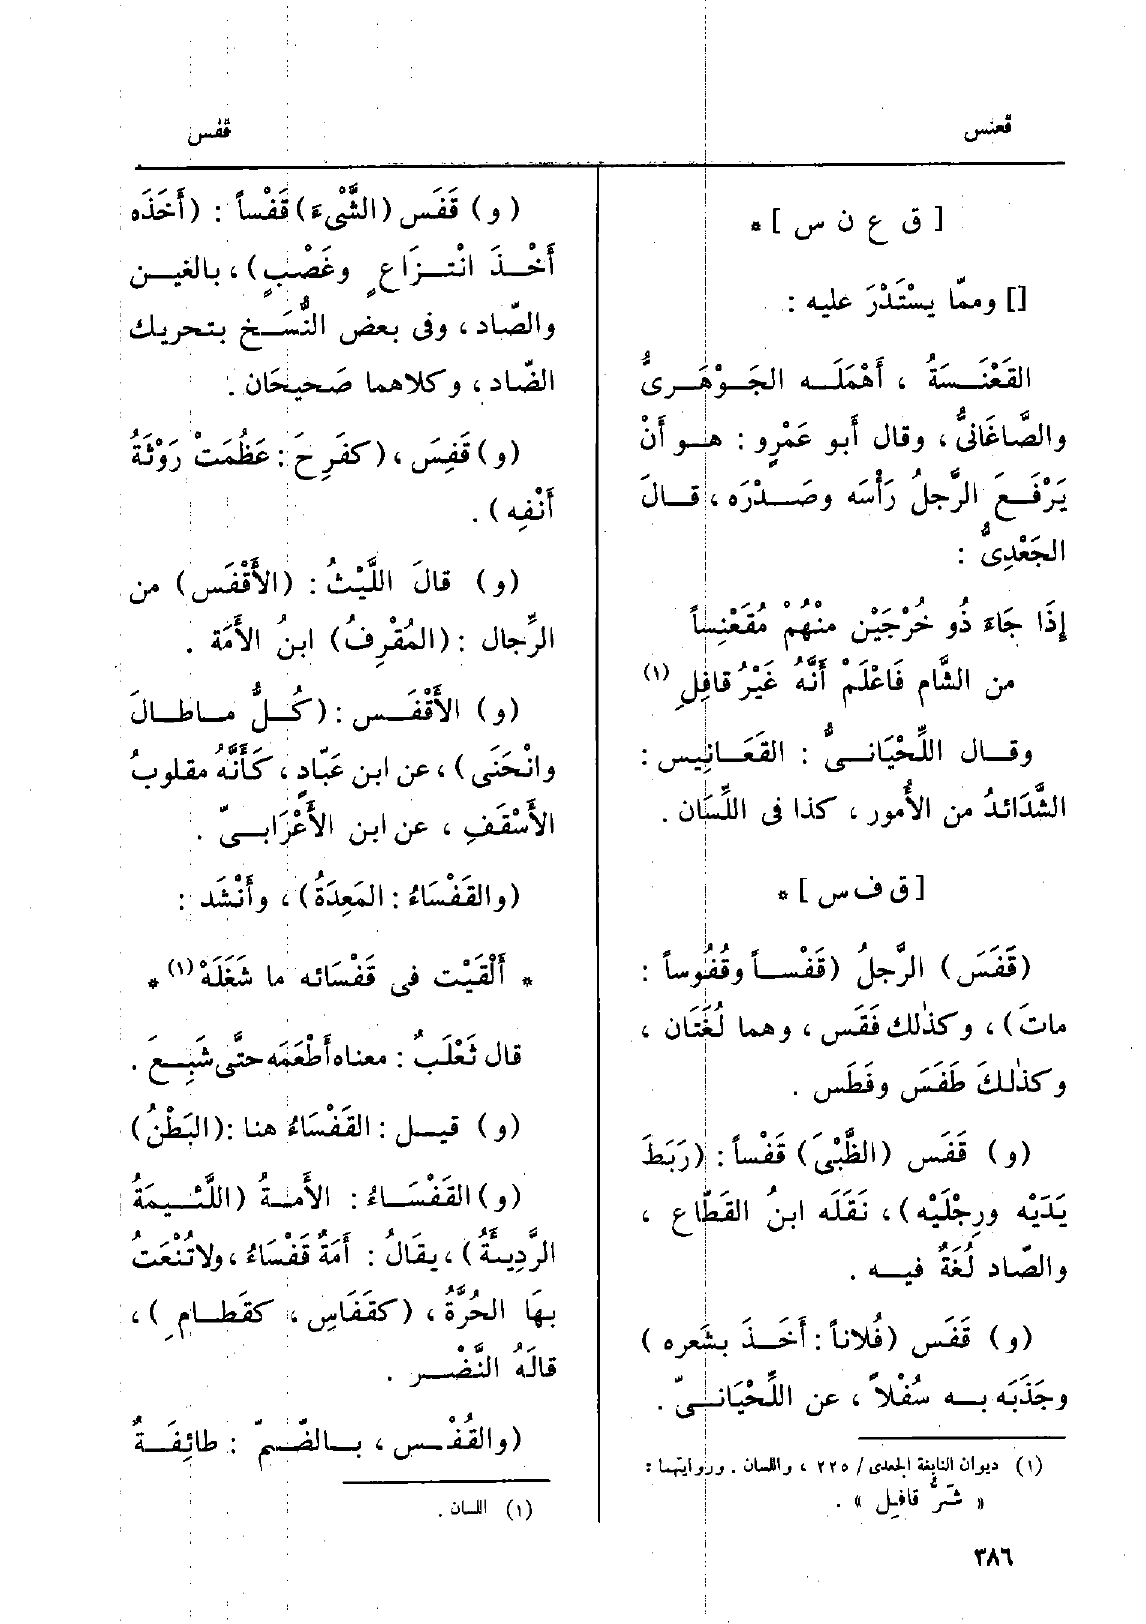 قعنس
قفس
[ ق ع ن س ] *
[] وممّا يسْتَدْرَ عليه :
القَعْنَسَةُ ، أَهْمَلَه الجَوْهَرِىُّ
والصَّاغَانِىُّ ، وقال أَبو عَمْرٍو : هو أَنْ
يَرْفَعَ الرَّجلُ رَأْسَه وصَدْرَه ، قالَ
الجَعْدِىُّ :
إِذَا جَاءَ ذُو خُرْجَيْن مِنْهُمْ مُقَعْنِساً
من الشَّام فَاعْلَمْ أَنَّهُ غَيْرُ قافِلِ (١)
وقال اللِّحْيَانىُّ : القَعَانِيس :
الشَّدَائدُ من الأُمور ، كذا فى اللِّسَان .
[ ق ف س ] *
(قَفَسَ) الرَّجلُ (قَفْساً وقُفُوساً :
ماتَ) ، وكذٰلك فَقَس ، وهما لُغَتَان ،
وكذٰلكَ طَفَسَ وفَطَس .
(و) قَفَس (الظَّبْىَ) قَفْساً : (رَبَطَ
يَدَيْه ورِجْلَيْه) ، نَقَلَه ابنُ القَطّاع ،
والصّاد لُغَةٌ فيه .
(و) قَفَس (فُلاناً : أَخَذَ بشَعره )
وجَذَبَه به سُفْلاً ، عن اللِّحْيَانىّ .
(١) ديوان النابغة الجعدى / ٢٢٥ ، واللسان . وروايتهما :
« شَرُّ قافِيل » .
(و) قَفَس (الشَّىْءَ) قَفْساً : (أَخَذَه
أَخْذَ انْتِزَاعٍ وغَصْبٍ) ، بالغين
والصّاد ، وفى بعض النُّسَخ بتحريك
الضّاد ، وكلاهما صَحيحَان .
(و) قَفِسَ ، (كفَرِحَ : عَظُمَتْ رَوْثَةُ
أَنْفِه) .
(و) قالَ اللَّيْثُ : (الأَقْفَس) من
الرِّجال : (المُقْرِفُ) ابنُ الأَمَة .
(و) الأَقْفَس : (كُلُّ ماطالَ
وانْحَنَى) ، عن ابن عَبّادٍ ، كَأَنَّهُ مقلوبُ
الأَسْقَفِ ، عن ابن الأَعْرَابىّ .
(والقَفْسَاءُ : المَعِدَةُ) ، وأَنْشَد :
* أَلْقَيْت فى قَفْسَائه ما شَغَلَهْ (١) *
قال ثَعْلَبٌ : معناه أَطْعَمَه حتَّى شَبِعَ .
(و) قيل : القَفْسَاءُ هنا : (البَطْنُ)
(و) القَفْسَاءُ : الأَمةُ (اللَّئيمَةُ
الرَّدِيئَةُ) ، يقَالُ : أَمَةٌ قَفْسَاءُ ، ولا تُنْعَتُ
بهَا الحُرَّةُ ، (كقَفَاسِ ، كقَطامِ ) ،
قالَهُ النَّضْر .
(والقُفْس ، بالضّمّ : طائِفَةٌ
(١) اللسان .
٣٨٦